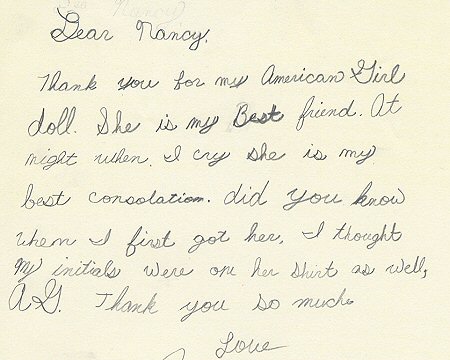 Dear Nancy,
Thank you for my American Girl
doll. She is my Best friend. At
night when I cry she is my
best consolation. did you know
when I first got her, I thought
my initials were on her shirt as well,
A.G. Thank you so much.
Love